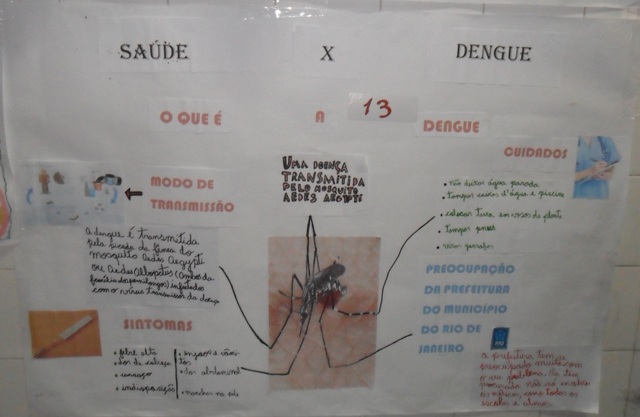 SAÚDE X DENGUE
O QUE É A 13 DENGUE
MODO DE
TRANSMISSÃO
A dengue é transmitida
pela picada da fêmea do
mosquito Aedes Aegypti
ou Aedes Albopictus (ambos da
família dos pernilongos) infectados
com o vírus transmissor da doença
SINTOMAS
• febre alta
• dor de cabeça
• cansaço
• indisposição
• enjoos e vômitos
• dor abdominal
• manchas na pele
UMA DOENÇA
TRANSMITIDA
PELO MOSQUITO
AEDES AEGYPTI
CUIDADOS
• não deixar água parada
• tampar caixas d'água e piscina
• colocar terra em vasos de planta
• tampar
• virar garrafas
PREOCUPAÇÃO
DA PREFEITURA
DO MUNICÍPIO
DO RIO DE
JANEIRO
RIO
a prefeitura tem se
preocupado muito com